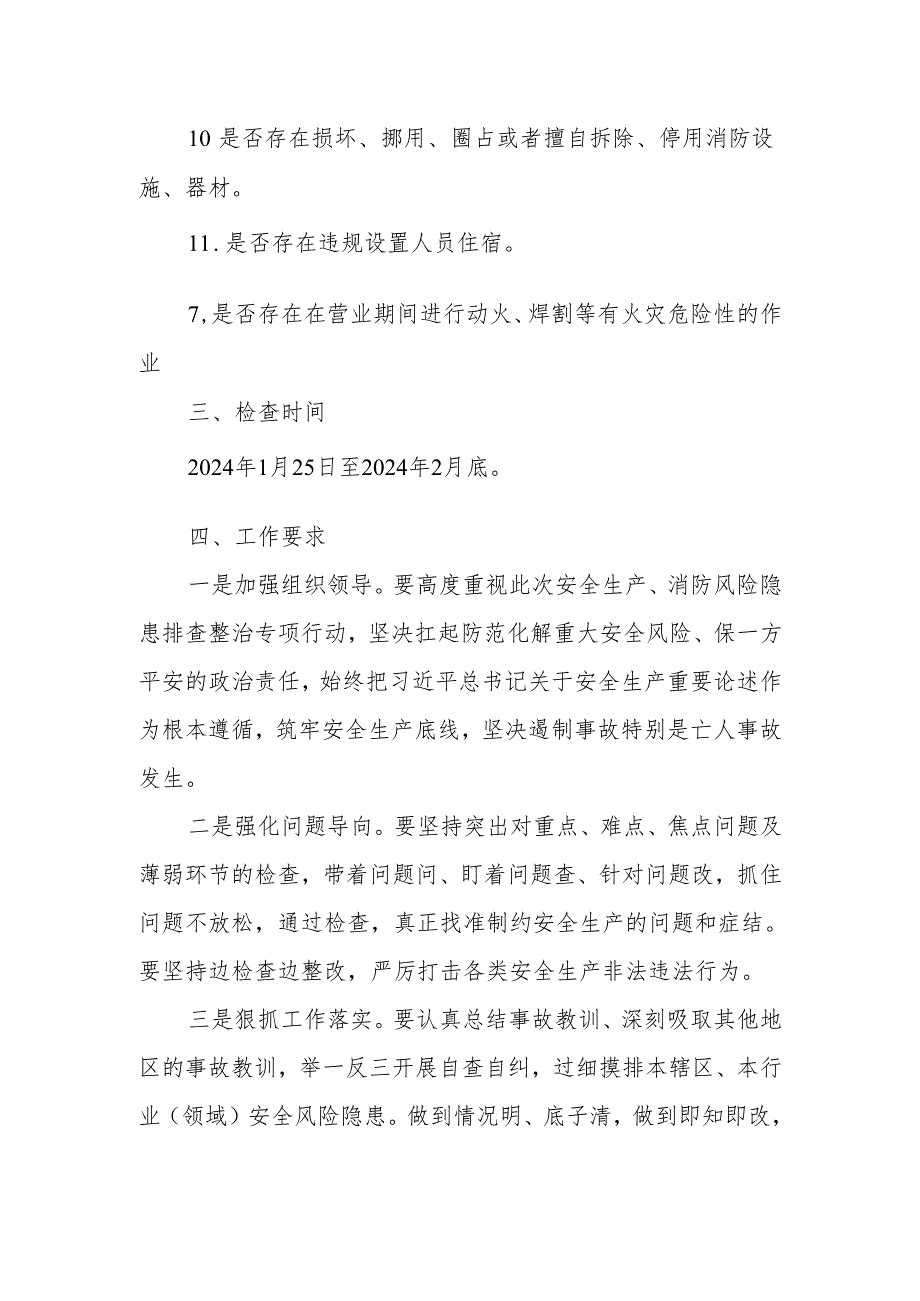 10 是否存在损坏、挪用、圈占或者擅自拆除、停用消防设
施、器材。
11.是否存在违规设置人员住宿。
7,是否存在在营业期间进行动火、焊割等有火灾危险性的作
业
三、检查时间
2024年1月25日至2024年2月底。
四、工作要求
一是加强组织领导。要高度重视此次安全生产、消防风险隐
患排查整治专项行动，坚决扛起防范化解重大安全风险、保一方
平安的政治责任，始终把习近平总书记关于安全生产重要论述作
为根本遵循，筑牢安全生产底线，坚决遏制事故特别是亡人事故
发生。
二是强化问题导向。要坚持突出对重点、难点、焦点问题及
薄弱环节的检查，带着问题问、盯着问题查、针对问题改，抓住
问题不放松，通过检查，真正找准制约安全生产的问题和症结。
要坚持边检查边整改，严厉打击各类安全生产非法违法行为。
三是狠抓工作落实。要认真总结事故教训、深刻吸取其他地
区的事故教训，举一反三开展自查自纠，过细摸排本辖区、本行
业（领域）安全风险隐患。做到情况明、底子清，做到即知即改，